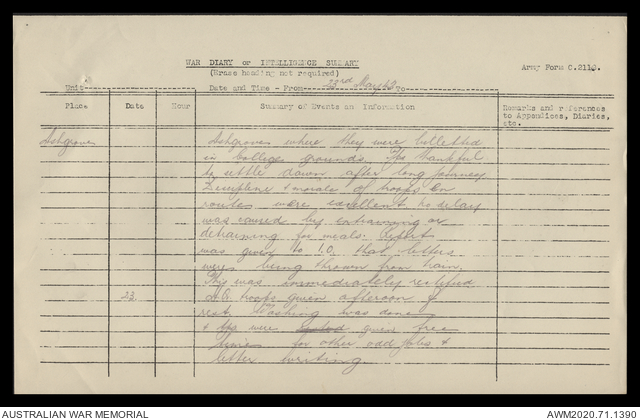 WAR DIARY or INTELLIGENCE SUMMARY
(Erase heading not required)
Army Form C.2118.
Unit
Date and Time - From 23rd May 42 To
Place Date Hour Summary of Events and Information Remarks and references
to Appendices, Diaries,
etc.
Ashgrove Ashgrove where they were billetted
in College grounds. Tps thankful
to settle down after long journey
Discipline & morale of troops en
route were excellent. No delay
was caused by entraining or
detraining for meals. Report
was given to I.O. that letters
were being thrown from train.
This was immediately rectified
23 troops given afternoon of
rest. Washing was done
& tps were given free
time for other odd jobs &
letter writing.
AUSTRALIAN WAR MEMORIAL
AWM2020.71.1390